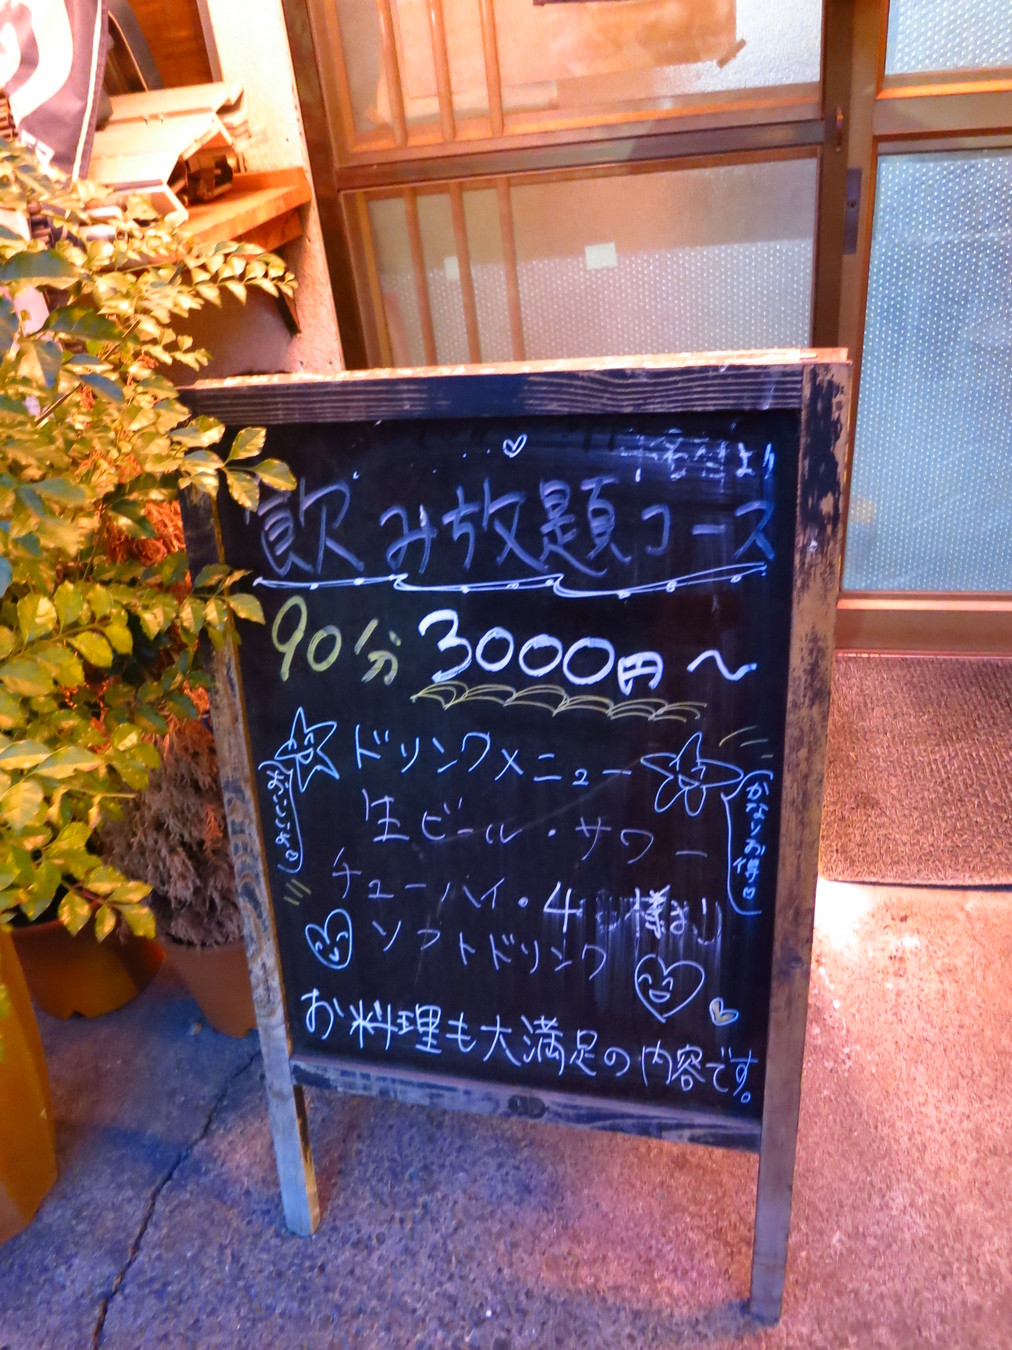 より
飲み放題コース
90分 3000円～
ドリンクメニュー
生ビール・サワー
チューハイ・4 様より
ソフトドリンク
お料理も大満足の内容です。